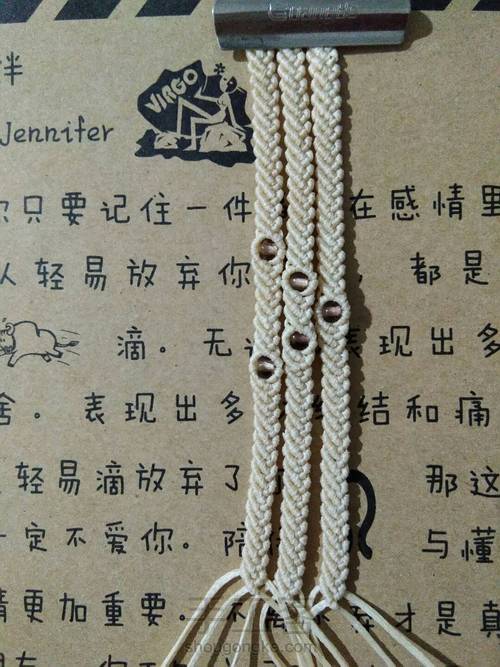 伴
Jennifer
VIRGO
你只要记住一件 在感情里
从轻易放弃你 ， 都是
滴。无 表现出多
舍。表现出多 结和痛
轻易滴放弃了 那这
一定不爱你。陪 与懂
情更加重要。不 才是真
shougongke.com